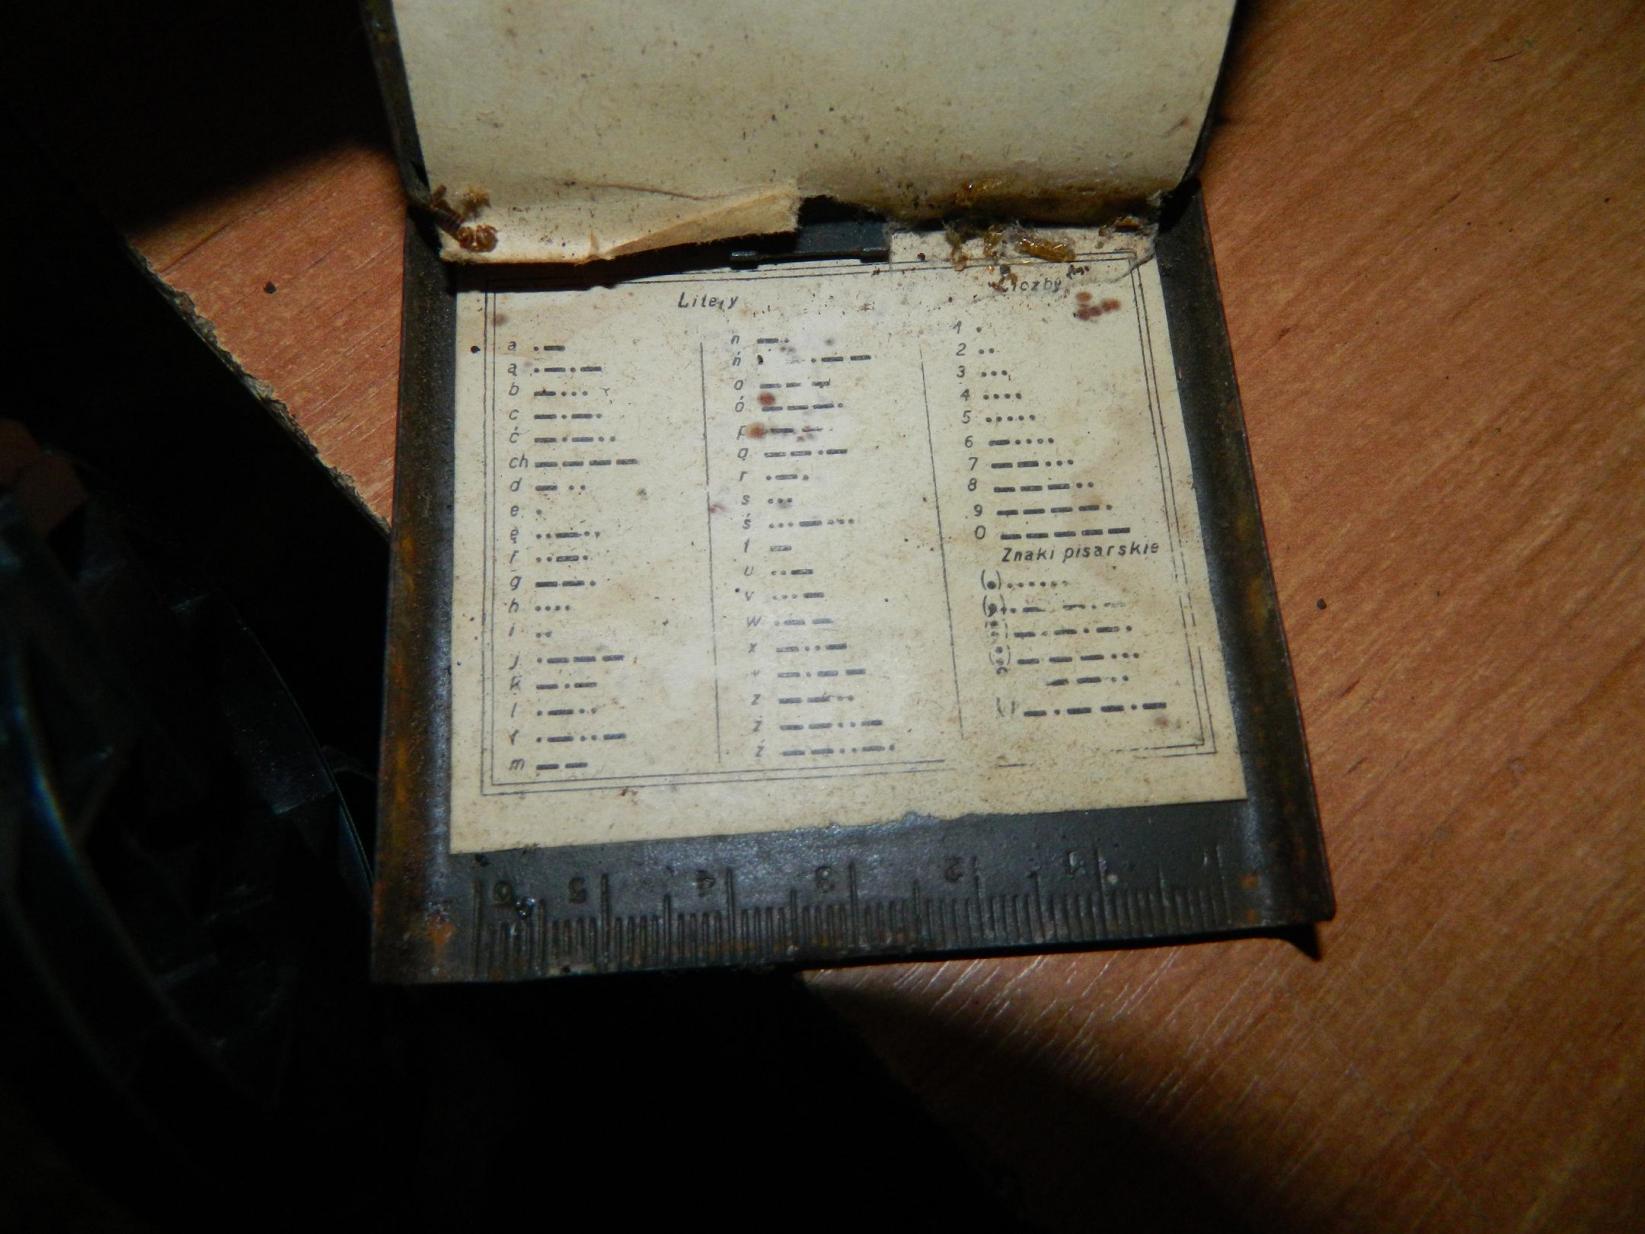 Litery
a .—
ą .—.—
b —...
c —.—.
ć —.—..
ch ————
d —..
e .
ę ..—..
f ..—.
g ——.
h ....
i ..
j .———
k —.—
l .—..
ł .—..—
m ——
n —.
ń ——.——
o ———
ó ———.
p .——.
q ——.—
r .—.
s ...
ś ...—...
t —
u ..—
v ...—
w .——
x —..—
y —.——
z ——..
ż ——..—
ź ——..—.
Liczby
1 .
2 ..
3 ...
4 ....
5 .....
6 —....
7 ——...
8 ———..
9 ————.
0 —————
Znaki pisarskie
(.) ......
6 5 4 3 2 1